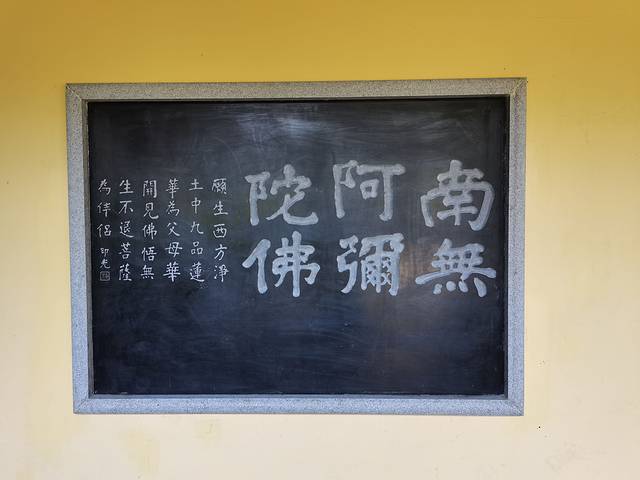 南無
阿彌
陀佛
願生西方淨
土中九品蓮
華為父母華
開見佛悟無
生不退菩薩
為伴侶 印光